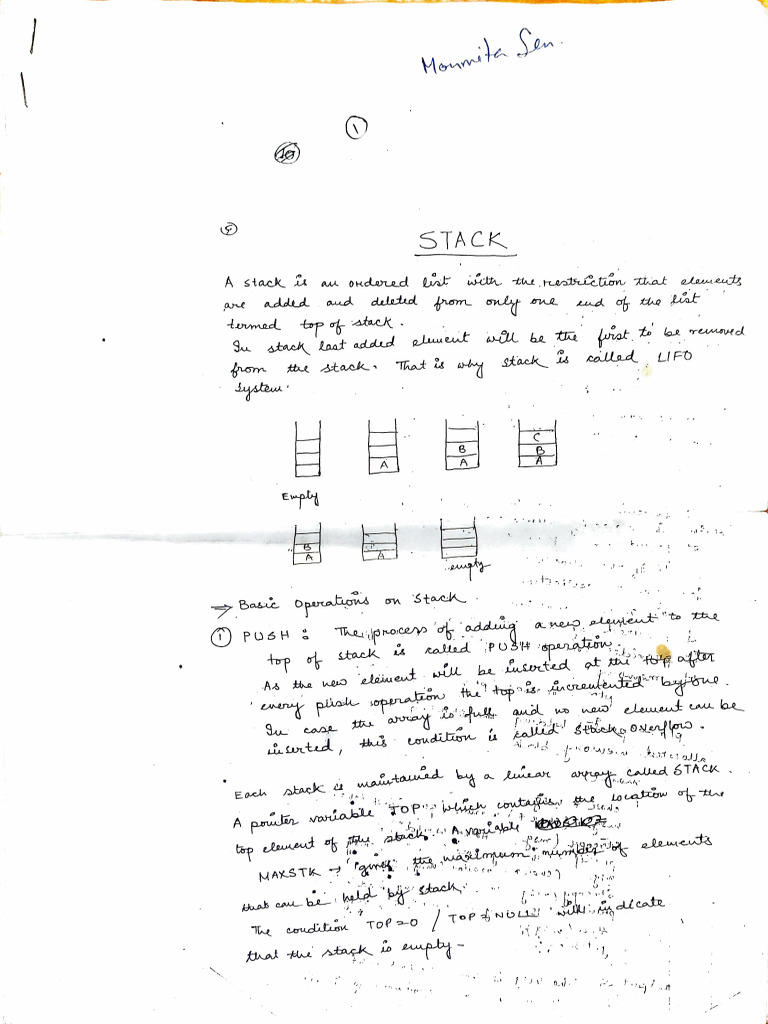 Moumita Sen.
1
STACK
A stack is an ordered list with the restriction that elements
are added and deleted from only one end of the list
termed top of stack.
In stack last added element will be the first to be removed
from the stack. That is why stack is called LIFO
system.
A
B
A
C
B
A
Empty
B
A
A
empty
⇒ Basic Operations on Stack.
① PUSH : The process of adding a new element to the
top of stack is called PUSH operation.
As the new element will be inserted at the top after
every push operation the top is incremented by one.
In case the array is full and no new element can be
inserted, this condition is called Stack Overflow.
Each stack is maintained by a linear array called STACK.
A pointer variable TOP, which contains the location of the
top element of the stack. A variable
MAXSTK → gives the maximum number of elements
that can be held by stack.
The condition TOP=0 / TOP=NULL will indicate
that the stack is empty -